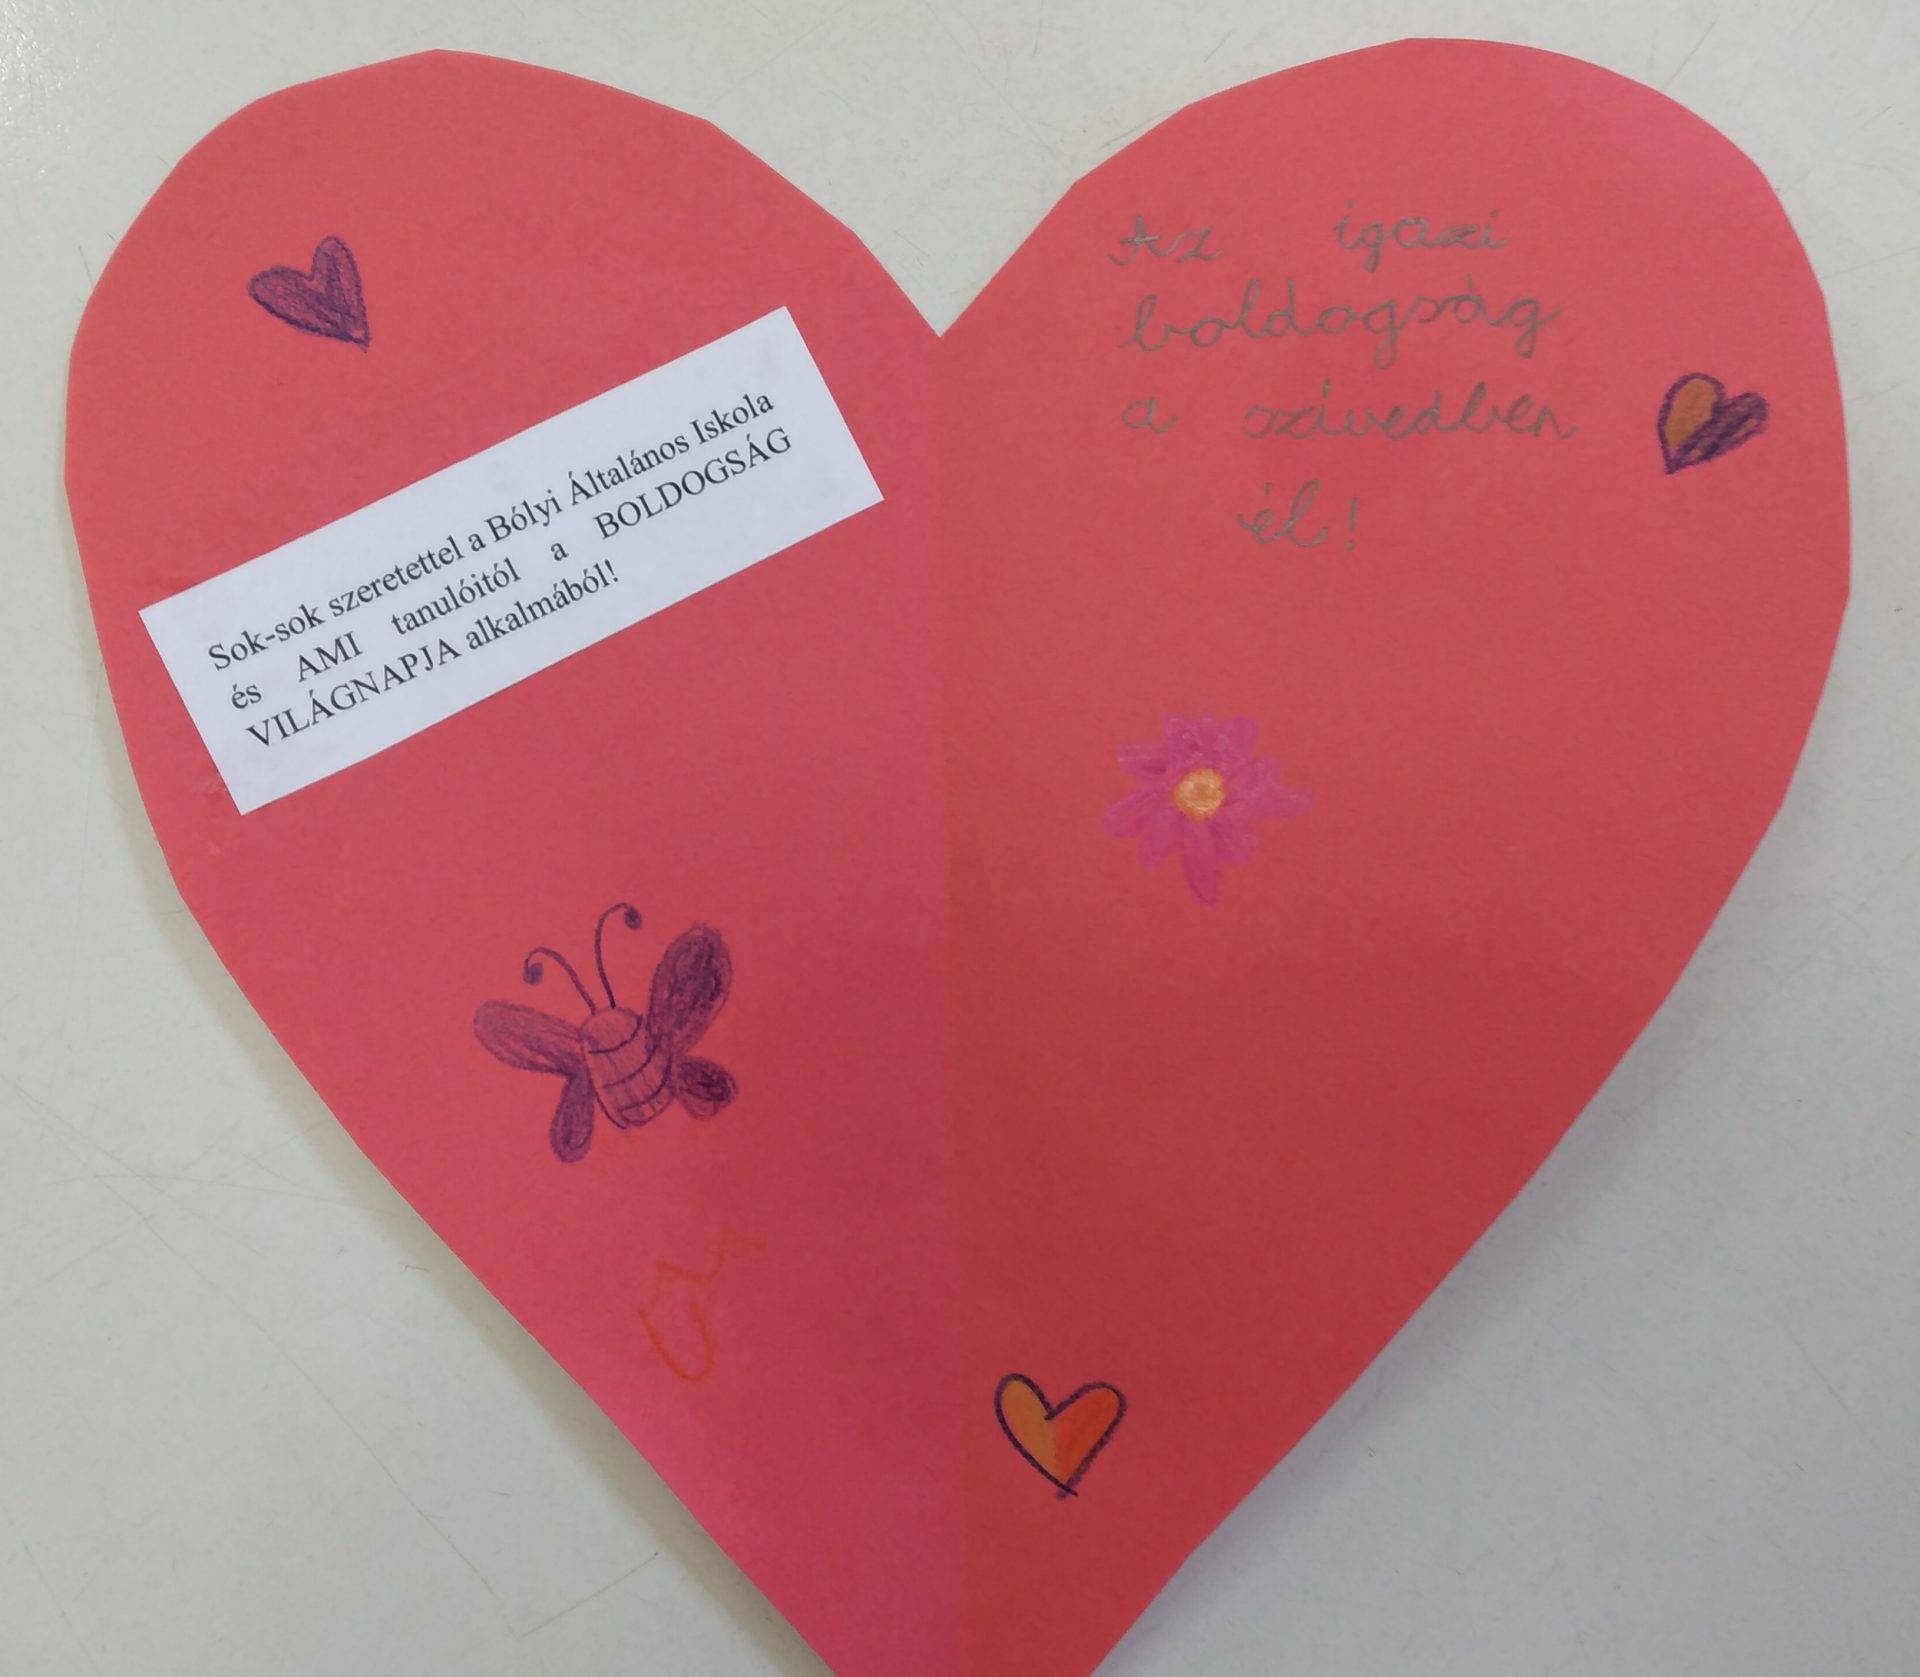 Sok-sok szeretettel a Bólyi Általános Iskola
és AMI tanulóitól a BOLDOGSÁG
VILÁGNAPJA alkalmából!
Az igazi
boldogság
a szívedben
él!